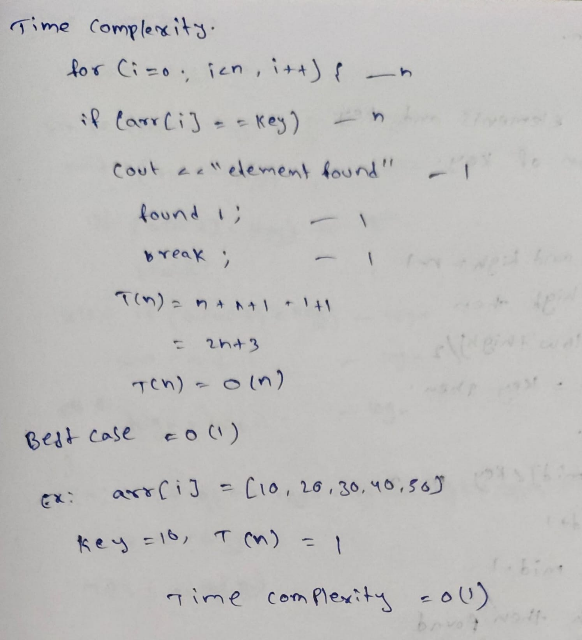 Time Complexity.
for (i=0; i<n, i++) { — n
if (arr[i] == key) — n
cout <<"element found" — 1
found 1; — 1
break; — 1
T(n) = n+n+1+1+1
= 2n+3
T(n) = O(n)
Best case = O(1)
Ex: arr[i] = [10, 20, 30, 40, 50]
key = 10, T(n) = 1
Time complexity = O(1)